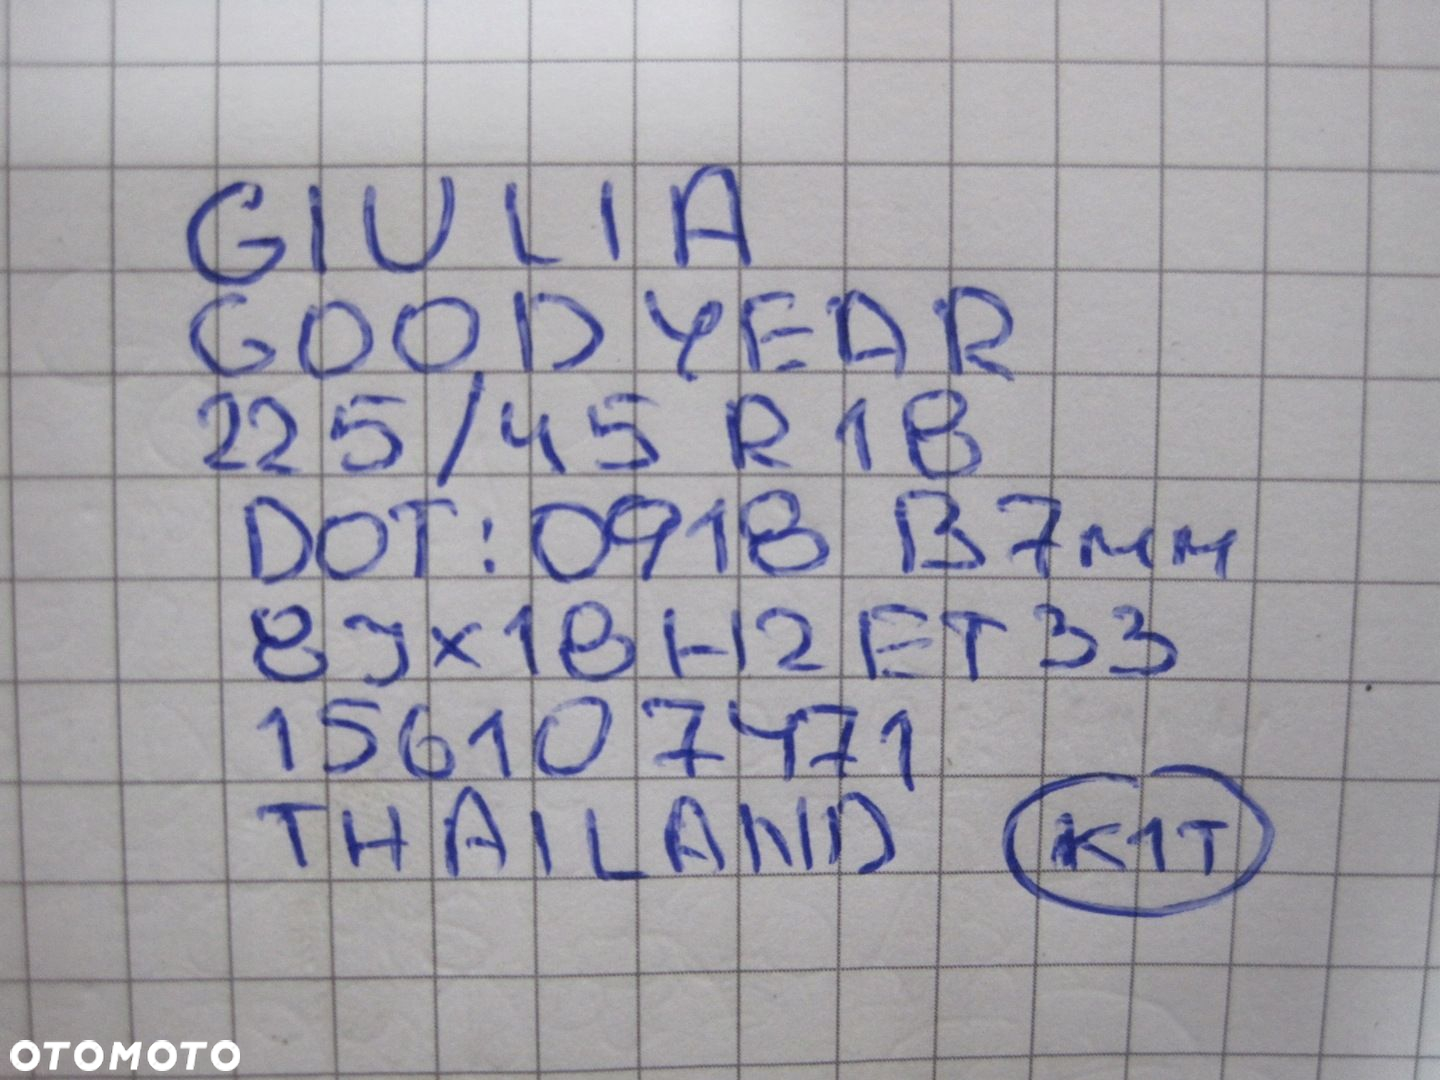 GIULIA
GOODYEAR
225/45 R18
DOT: 0918 B7mm
8Jx18H2ET33
156107471
THAILAND K1T
OTOMOTO